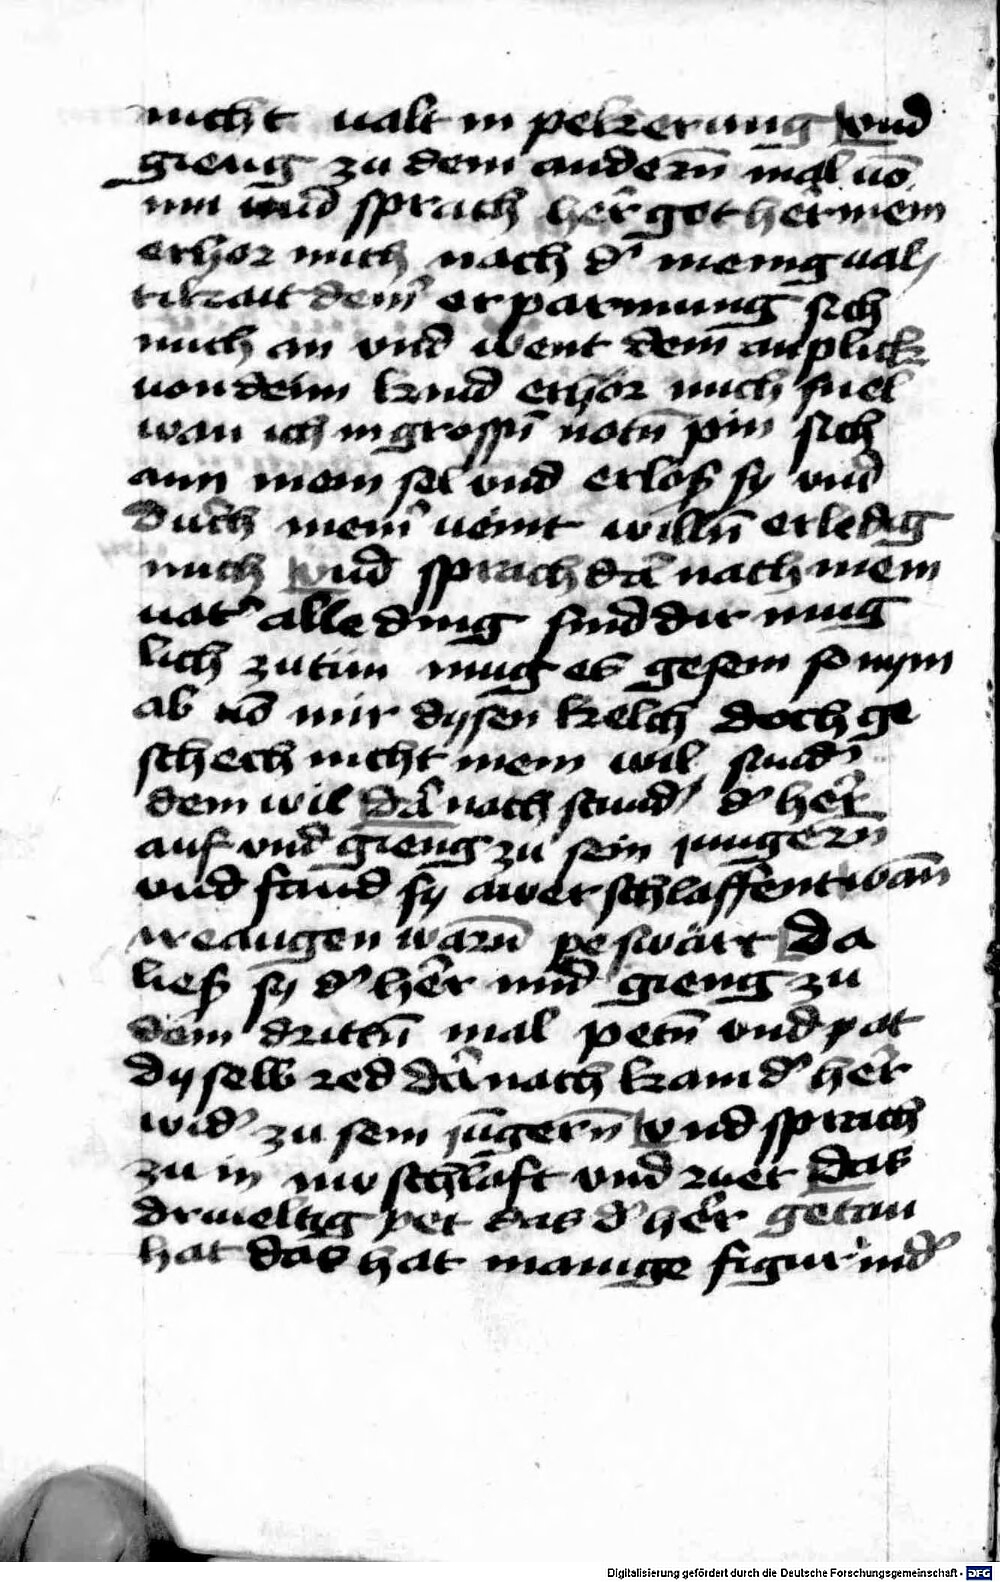 nicht valt in pekerung vnd
gieng zu dem andern̄ mal vō
im vnd sprach her̄ got her̄ mein
erhor mich nach d' menigual
tikait dein' erparmung sich
mich an vnd went dein anplick
von deim kind erhör mich snel
wan ich in grossn̄ nötn̄ pin sich
ann mein sel vnd erlös sy vnd
durch mein' veint willn̄ erledig
mich vnd sprach dā nach mein
vat' alle ding sind dir mug
lich zu tün mug es gesein so nym
ab vō mir dysen kelch doch ge
schech nicht mein wil sund'
dein wil dā nach stund d' her̄
auf vnd gieng zu sein jungern̄
vnd fand sy awer schlaffent wān
ire augen warn̄ peswärt Da
lies sy d' her̄ vnd gieng zu
dem drittn̄ mal petn̄ vnd pat
dyselb red dā nach kam d' her̄
wid' zu sein jūngern̄ vnd sprach
zu in nw schlaft vnd ruet Das
driueltig pet das d' her̄ getan
hat das hat manige figur ind'
Digitalisierung gefördert durch die Deutsche Forschungsgemeinschaft - DFG